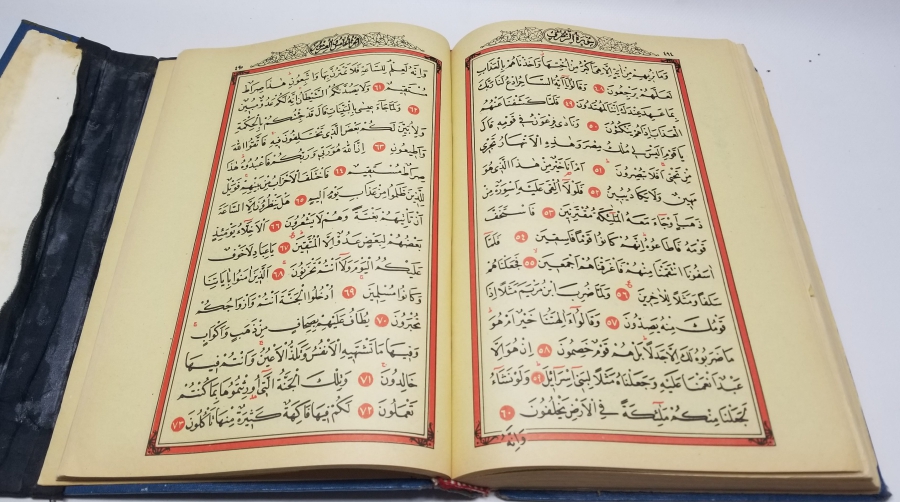 سورة الزخرف
٤٩٤
وَمَا نُرِيهِمْ مِنْ اٰيَةٍ اِلَّا هِيَ اَكْبَرُ مِنْ اُخْتِهَا وَاَخَذْنَاهُمْ بِالْعَذَابِ
لَعَلَّهُمْ يَرْجِعُونَ ٤٨ وَقَالُوا يَا اَيُّهَ السَّاحِرُ ادْعُ لَنَا رَبَّكَ
بِمَا عَهِدَ عِنْدَكَ اِنَّنَا لَمُهْتَدُونَ ٤٩ فَلَمَّا كَشَفْنَا عَنْهُمُ
الْعَذَابَ اِذَا هُمْ يَنْكُثُونَ ٥٠ وَنَادٰى فِرْعَوْنُ فِي قَوْمِهِ قَالَ
يَا قَوْمِ اَلَيْسَ لِي مُلْكُ مِصْرَ وَهٰذِهِ الْاَنْهَارُ تَجْرِي
مِنْ تَحْتِي اَفَلَا تُبْصِرُونَ ٥١ اَمْ اَنَا خَيْرٌ مِنْ هٰذَا الَّذِي هُوَ
مَهِينٌ وَلَا يَكَادُ يُبِينُ ٥٢ فَلَوْلَا اُلْقِيَ عَلَيْهِ اَسْوِرَةٌ مِنْ
ذَهَبٍ اَوْ جَاءَ مَعَهُ الْمَلٰئِكَةُ مُقْتَرِنِينَ ٥٣ فَاسْتَخَفَّ
قَوْمَهُ فَاَطَاعُوهُ اِنَّهُمْ كَانُوا قَوْمًا فَاسِقِينَ ٥٤ فَلَمَّا
اٰسَفُونَا انْتَقَمْنَا مِنْهُمْ فَاَغْرَقْنَاهُمْ اَجْمَعِينَ ٥٥ فَجَعَلْنَاهُمْ
سَلَفًا وَمَثَلًا لِلْاٰخِرِينَ ٥٦ وَلَمَّا ضُرِبَ ابْنُ مَرْيَمَ مَثَلًا اِذَا
قَوْمُكَ مِنْهُ يَصِدُّونَ ٥٧ وَقَالُوا ءَاٰلِهَتُنَا خَيْرٌ اَمْ هُوَ
مَا ضَرَبُوهُ لَكَ اِلَّا جَدَلًا بَلْ هُمْ قَوْمٌ خَصِمُونَ ٥٨ اِنْ هُوَ اِلَّا
عَبْدٌ اَنْعَمْنَا عَلَيْهِ وَجَعَلْنَاهُ مَثَلًا لِبَنِي اِسْرَائِلَ ٥٩ وَلَوْ نَشَاءُ
لَجَعَلْنَا مِنْكُمْ مَلٰئِكَةً فِي الْاَرْضِ يَخْلُفُونَ ٦٠
وَاِنَّهُ
وَاِنَّهُ لَعِلْمٌ لِلسَّاعَةِ فَلَا تَمْتَرُنَّ بِهَا وَاتَّبِعُونِ هٰذَا صِرَاطٌ
مُسْتَقِيمٌ ٦١ وَلَا يَصُدَّنَّكُمُ الشَّيْطَانُ اِنَّهُ لَكُمْ عَدُوٌّ مُبِينٌ
٦٢ وَلَمَّا جَاءَ عِيسٰى بِالْبَيِّنَاتِ قَالَ قَدْ جِئْتُكُمْ بِالْحِكْمَةِ
وَلِاُبَيِّنَ لَكُمْ بَعْضَ الَّذِي تَخْتَلِفُونَ فِيهِ فَاتَّقُوا اللّٰهَ
وَاَطِيعُونِ ٦٣ اِنَّ اللّٰهَ هُوَ رَبِّي وَرَبُّكُمْ فَاعْبُدُوهُ هٰذَا
صِرَاطٌ مُسْتَقِيمٌ ٦٤ فَاخْتَلَفَ الْاَحْزَابُ مِنْ بَيْنِهِمْ فَوَيْلٌ
لِلَّذِينَ ظَلَمُوا مِنْ عَذَابِ يَوْمٍ اَلِيمٍ ٦٥ هَلْ يَنْظُرُونَ اِلَّا السَّاعَةَ
اَنْ تَأْتِيَهُمْ بَغْتَةً وَهُمْ لَا يَشْعُرُونَ ٦٦ اَلْاَخِلَّاءُ يَوْمَئِذٍ
بَعْضُهُمْ لِبَعْضٍ عَدُوٌّ اِلَّا الْمُتَّقِينَ ٦٧ يَا عِبَادِ لَا خَوْفٌ
عَلَيْكُمُ الْيَوْمَ وَلَا اَنْتُمْ تَحْزَنُونَ ٦٨ اَلَّذِينَ اٰمَنُوا بِاٰيَاتِنَا
وَكَانُوا مُسْلِمِينَ ٦٩ اُدْخُلُوا الْجَنَّةَ اَنْتُمْ وَاَزْوَاجُكُمْ
تُحْبَرُونَ ٧٠ يُطَافُ عَلَيْهِمْ بِصِحَافٍ مِنْ ذَهَبٍ وَاَكْوَابٍ
وَفِيهَا مَا تَشْتَهِيهِ الْاَنْفُسُ وَتَلَذُّ الْاَعْيُنُ وَاَنْتُمْ فِيهَا
خَالِدُونَ ٧١ وَتِلْكَ الْجَنَّةُ الَّتِي اُورِثْتُمُوهَا بِمَا كُنْتُمْ
تَعْمَلُونَ ٧٢ لَكُمْ فِيهَا فَاكِهَةٌ كَثِيرَةٌ مِنْهَا تَأْكُلُونَ ٧٣